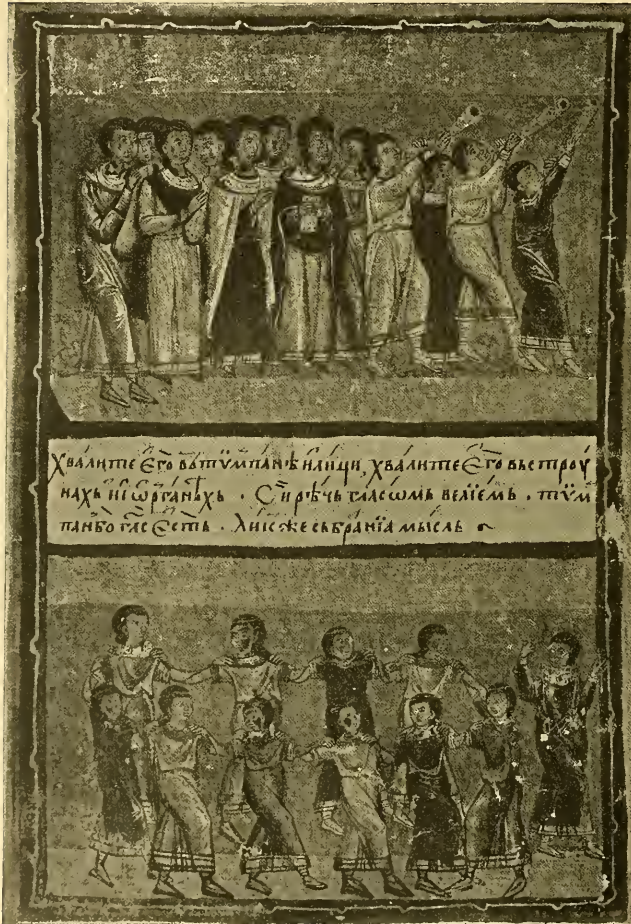 Хвалите Єго вътѷмпанѣ илици, хвалите Єго въстроу
нахь иѡрганѣхь · Сирѣчь гласѡмь велїемь · тѷм
пан бо глс Єсть · ликже събранїа мысль ~